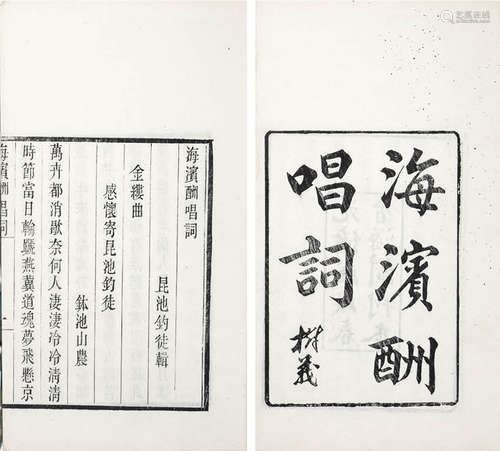 海濱酬
唱詞
樹義
海濱酬唱詞
昆池釣徒輯
金縷曲
感懷寄昆池釣徒
鉢池山農
萬卉都消歇奈何人淒淒冷冷清清
時節當日輪燕冀道魂夢飛懸京
海濱酬唱詞
一